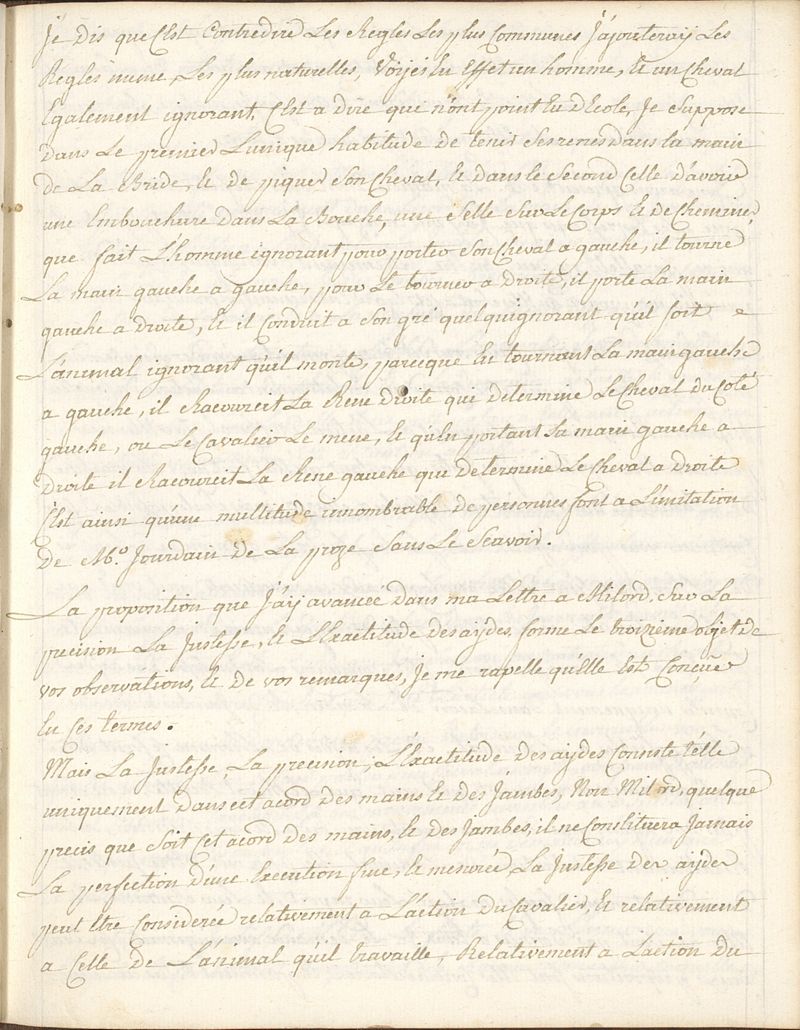 Je Dis que C'Est Contredire Les Regles Les plus Communes J'ajouteraÿ Les
Regles meme Les plus naturelles, Voÿés En Effet un homme, & un Cheval
Egalement ignorant, C'Est a Dire qui n'ont point Eu d'Ecole, Je Suppose
Dans Le premier L'unique habitude De tenir Ses renes Dans la main
De La Bride, & De piquer Son Cheval, & Dans le Second Celle D'avoir
une Embouchure Dans La Bouche, une Selle Sur Le Corps & De Cheminer,
que fait L'homme ignorant pour porter Son Cheval a gauche, il tourne
La main gauche a gauche, pour Le tourner a Droite, il porte La main
gauche a Droite, & il Conduit a Son gré quelqu'ignorant qu'il Soit
L'animal ignorant qu'il monte, parceque En tournant La main gauche
a gauche, il Racourcit La Rene Droite qui Determine Le Cheval Du Coté
gauche, ou Le Cavalier Le mene, & qu'En portant Sa main gauche a
Droite il Racourcit La Rene gauche qui Determine Le Cheval a Droite
C'Est ainsi qu'une multitude innombrable De personnes font a L'imitation
De Mr. Jourdain De La proze Sans Le Scavoir.
La proposition que J'aÿ avancée Dans ma Lettre a Milord, Sur La
precision La Justesse, & L'Exactitude Des aÿdes forme Le troizieme objet de
vos observations, & De vos remarques, Je me rapelle qu'Elle Est Conçuë
En Ces termes.
Mais La Justesse, La precision, L'Exactitude Des aÿdes Consiste t'elle
uniquement Dans cet acord Des mains & Des Jambes, Non Milord, quelque
precis que Soit Cet acord Des mains, & Des Jambes, il ne Constituera Jamais
La perfection D'une Execution fine, & mesurée La Justesse Des aÿdes
peut Etre Considerée relativement a L'action Du Cavalier, & relativement
a Celle De L'animal qu'il travaille, Relativement a L'action Du